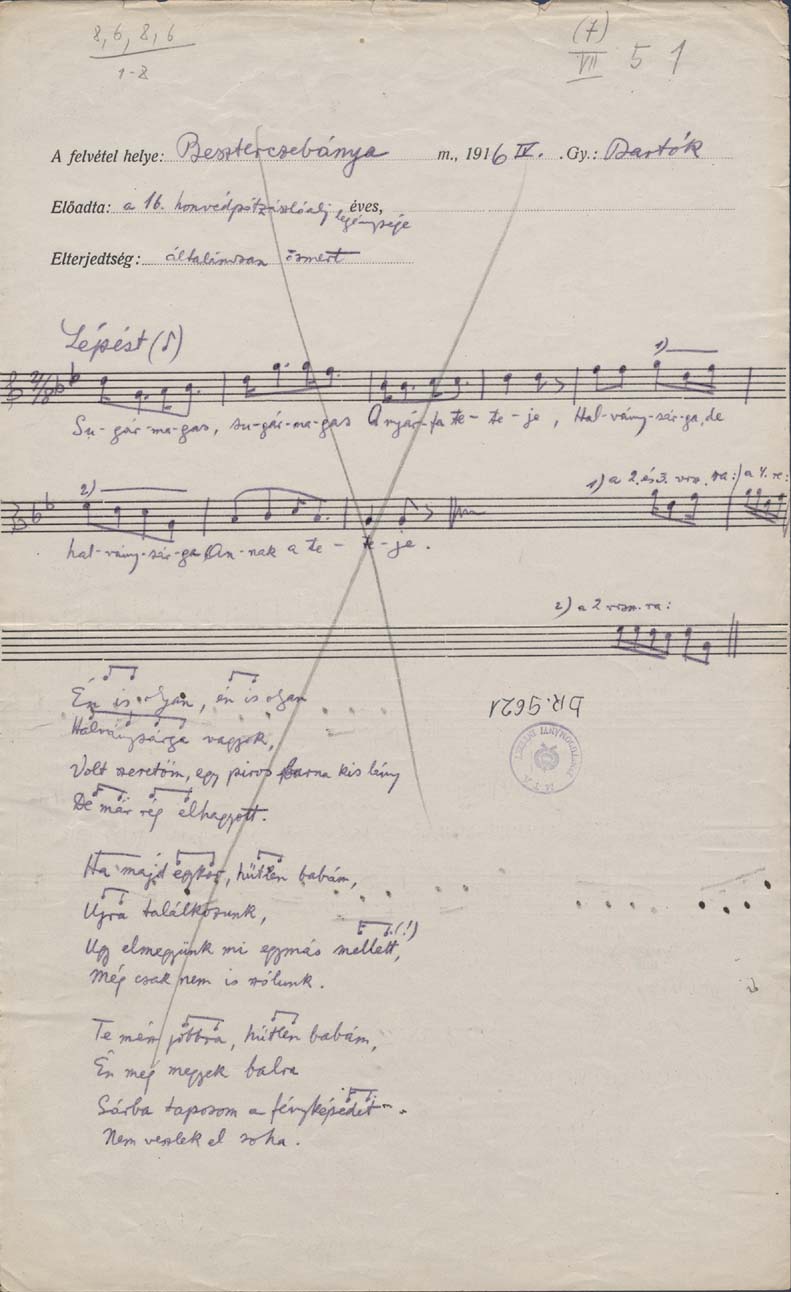 8, 6, 8, 6
1-8
(7)
VII
51
A felvétel helye: Besztercebánya m., 1916 IV. Gy.: Bartók
Előadta: a 16. honvédpótzászlóalj legénysége éves,
Elterjedtség: általánosan ösmert
Lépést (♪)
1)
Su-gár-ma-gas, su-gár-ma-gas A nyár-fa te-te-je, Hal-vány-sár-ga, de
2)
1) a 2. és 3. vrsz. ra: a 4. re:
hal-vány-sár-ga An-nak a te-te-je.
2) a 2 vrsz. ra:
Én is olyan, én is olyan
Halványsárga vagyok,
Volt szeretőm, egy piros barna kis lány
De már rég elhagyott.
BR. 9621
Ha majd egykor, hűtlen babám,
Ujra találkozunk,
Ugy elmegyünk mi egymás mellett, (!)
Még csak nem is szólunk.
Te mén jobbra, hűtlen babám,
Én meg megyek balra
Sárba taposom a fényképedet
Nem veszlek el soha.